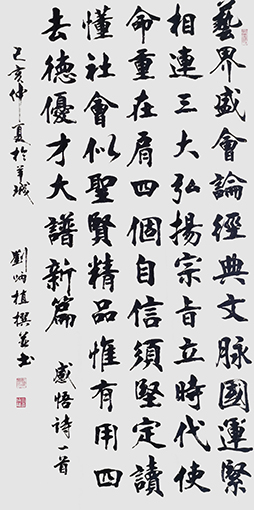 藝界盛會論經典文脈國運緊
相連三大弘揚宗旨立時代使
命重在肩四個自信須堅定讀
懂社會似聖賢精品惟有用四
去德優才大譜新篇 感悟詩一首
己亥仲夏於羊城 劉炳植撰並书